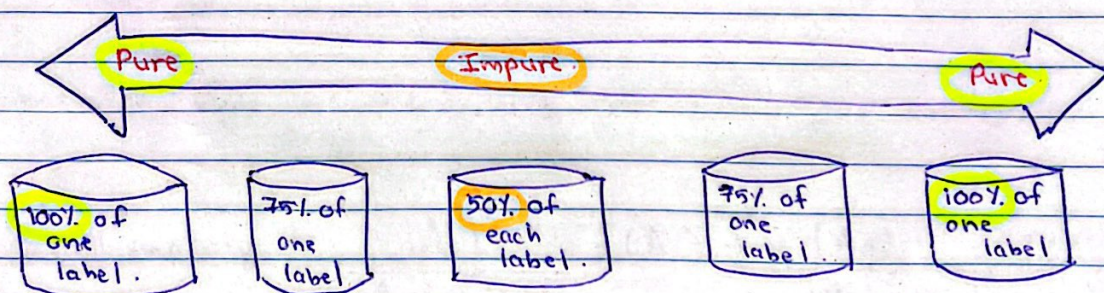 Pure
Impure.
Pure
100% of
one
label.
75% of
one
label
50% of
each
label.
75% of
one
label.
100% of
one
label